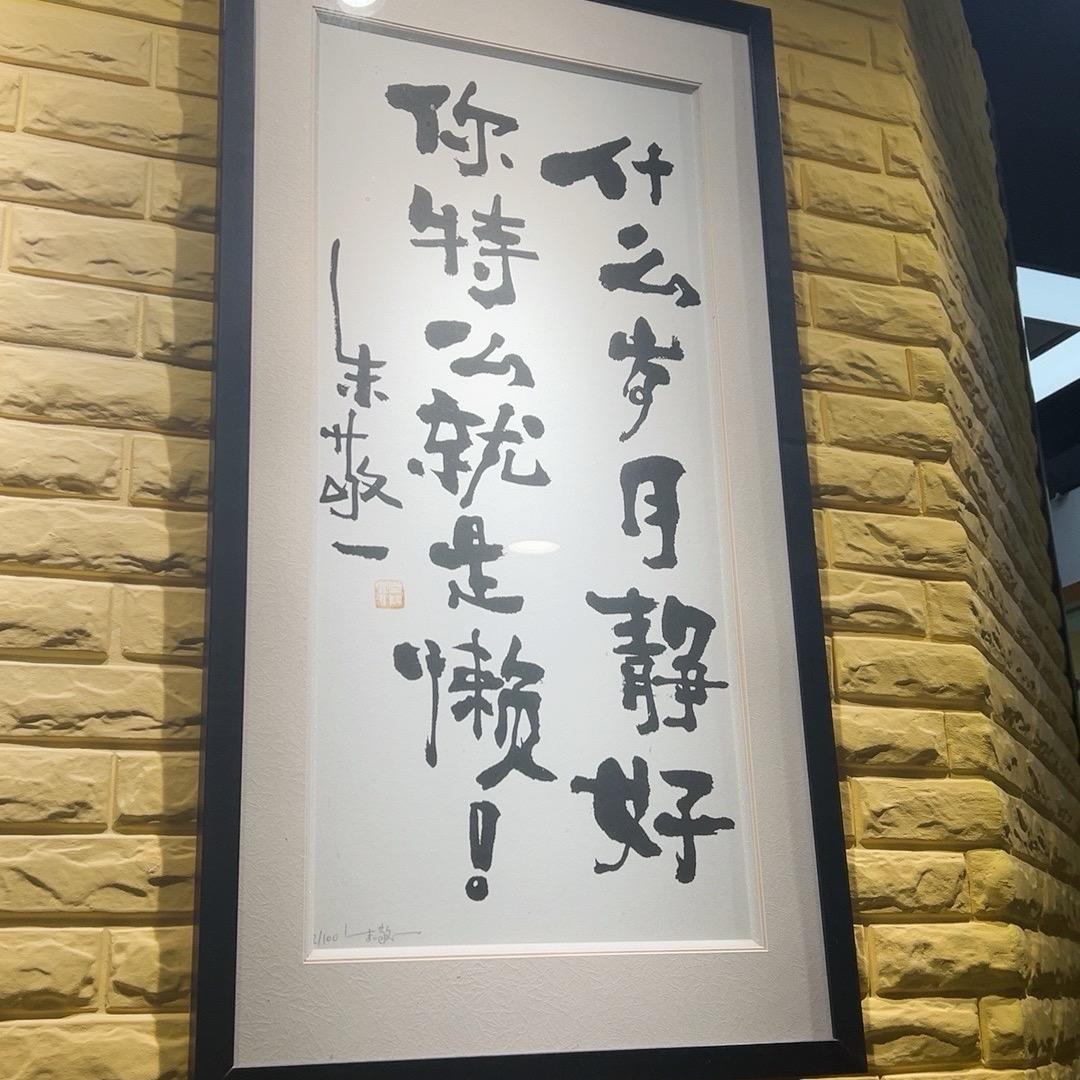 什么岁月静好
你特么就是懒！
朱敬一
/100 朱敬一